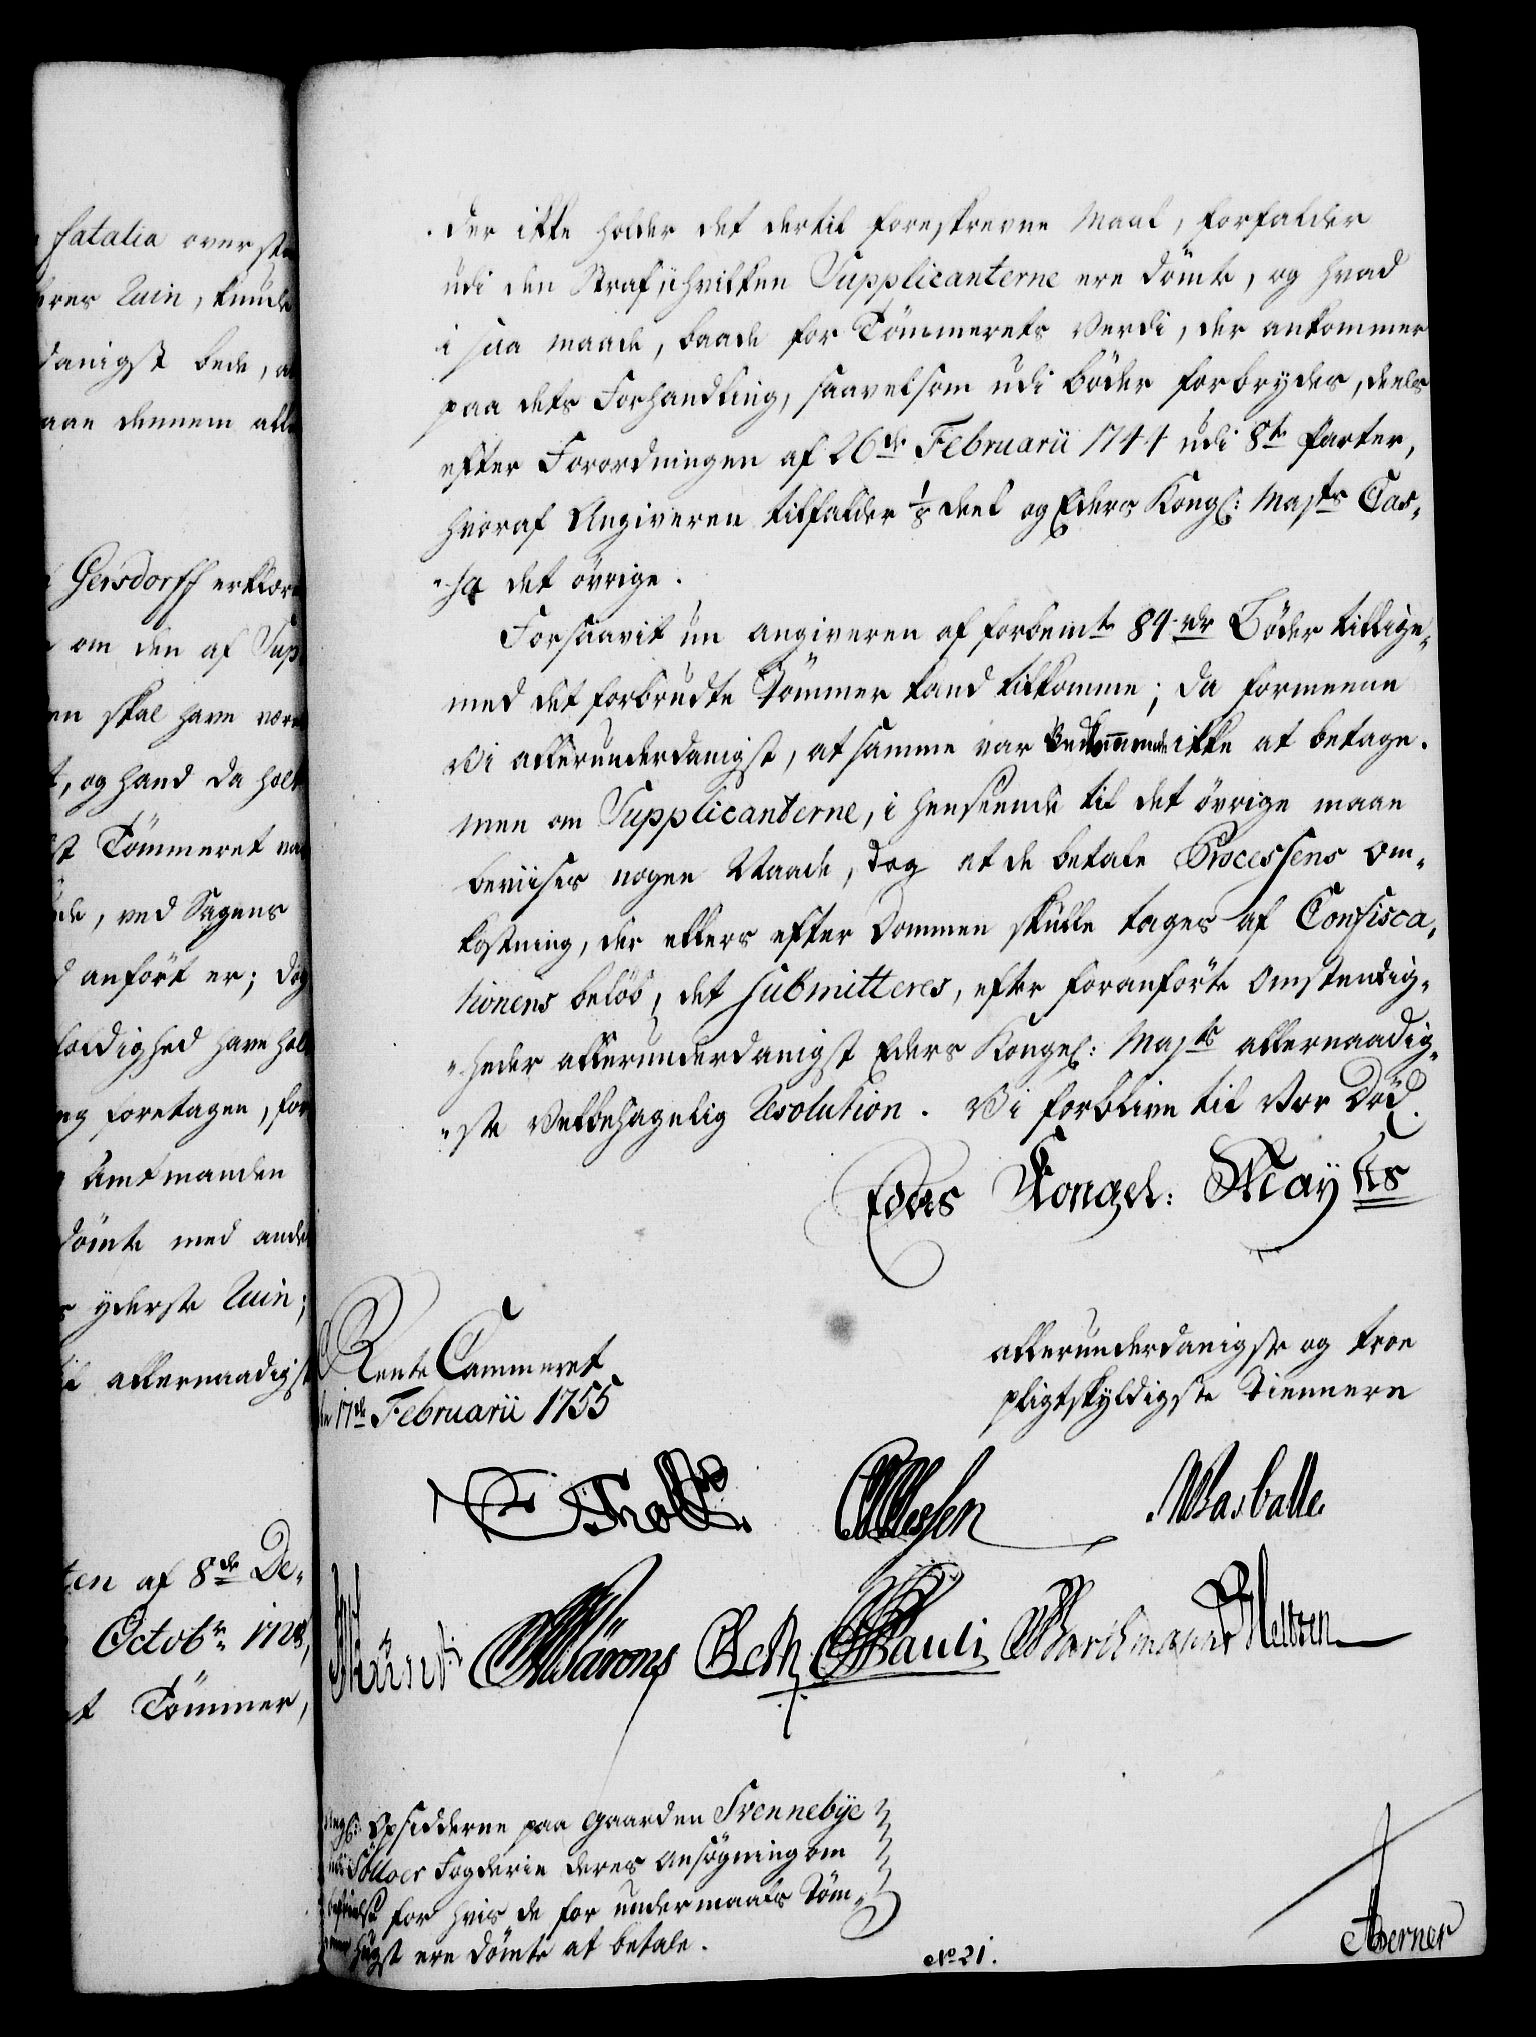 fatalia overstaa
Ruin, kunde
danigst bede, at
dennem alle
Gersdorff erklær
om den af Sup
en skal have være
t, og hand da hol
st Tömmeret va
de, ved Sagens
anfört er; dog
foldighed have hol
ng foretagen, for
Amtmanden
dömte med and
yderste Ruin;
til allernaadigst
ten af 8de De-
Octobr: 1728,
t Tömmer,
der ikke holder det dertil foreskrevne Maal, forfalder
udi den Straf, hvilken Supplicanterne ere dömte, og hvad
i saa maade, baade for Tömmerets Verdi, der ankommer
paa dets Forhandling, saavelsom udi böder forbrydes, deeles
efter Forordningen af 26de Februarii 1744 udi 8te Parter,
hvoraf Angiveren tilfalder 1/8 deel og Eders Kongl: Majts Cas-
-sa det övrige.
Forsaavit nu angiveren af forbemte 84 rdr Böder tillige-
med det forbrudte Tömmer kand tilkomme; da formeene
Vi allerunderdanigst, at samme var ikke at betage.
men om Supplicanterne, i henseende til det övrige maae
beviises nogen Naade, dog at de betale Processens Om-
kostning, der ellers efter Dommen skulle tages af Confisca-
tionens belöb, det submitteres, efter foranförte Omstendig-
-heder allerunderdanigst Eders Kongel: Majts allernaadig-
-ste Velbehagelig Resolution. Vi forblive til Vor Död.
Eders Kongel: Mayts
Rente Cammeret
17de Februarii 1755
allerunderdanigste og troe
pligtskyldigste Tiennere
Holst
Wasballe
Pauli Barthmann
Opsidderne paa Gaarden Svennebÿe
udi Söllöer Fogderie deres Ansögning om
befrielse for hvis de for undermaals Töm-
hugst ere dömte at betale.
No 21.
Berner